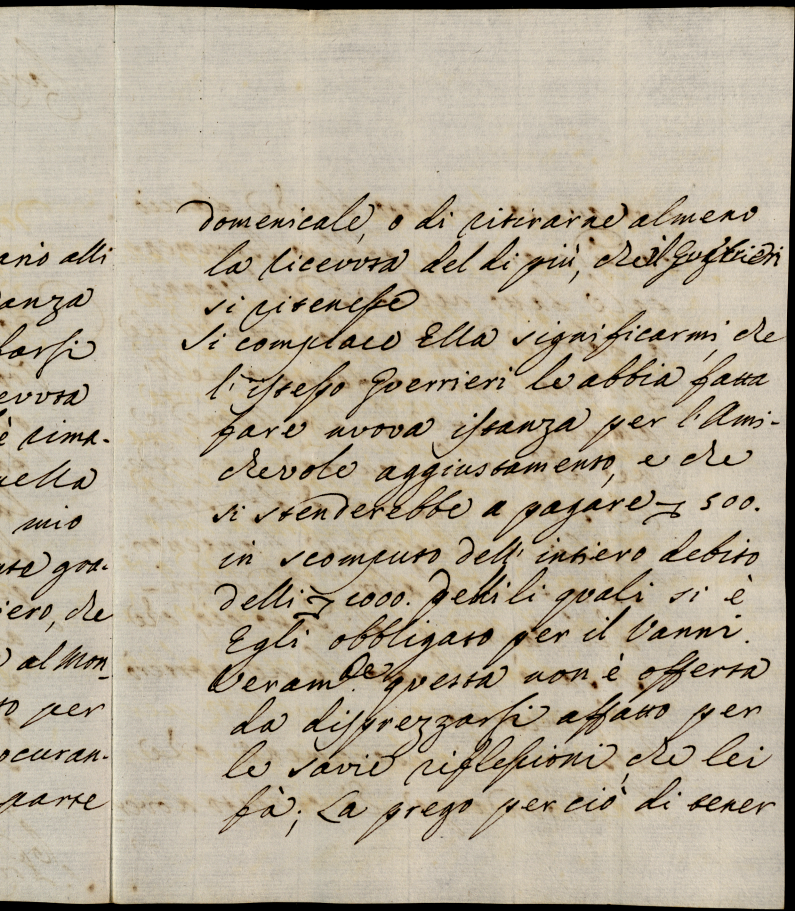 ario alli
anza
farsi
evuta
è rima-
uella
mio
nte gra-
iero, che
al Mon-
to per
ocuran-
parte
domenicale, o di ritirarne almeno
la ricevuta del di più, che il Guerrieri
si ritenesse
Si compiace Ella significarmi, che
l'istesso Guerrieri le abbia fatta
fare nuova istanza per l'Ami-
chevole aggiustamento, e che
si stenderebbe a pagare 500.
in scomputo dell'intiero debito
delli 1000. per li quali si è
Egli obbligato per il Vanni.
Veram.te questa non è offerta
da disprezzarsi affatto per
le savie riflessioni, che lei
fà; La prego perciò di tener